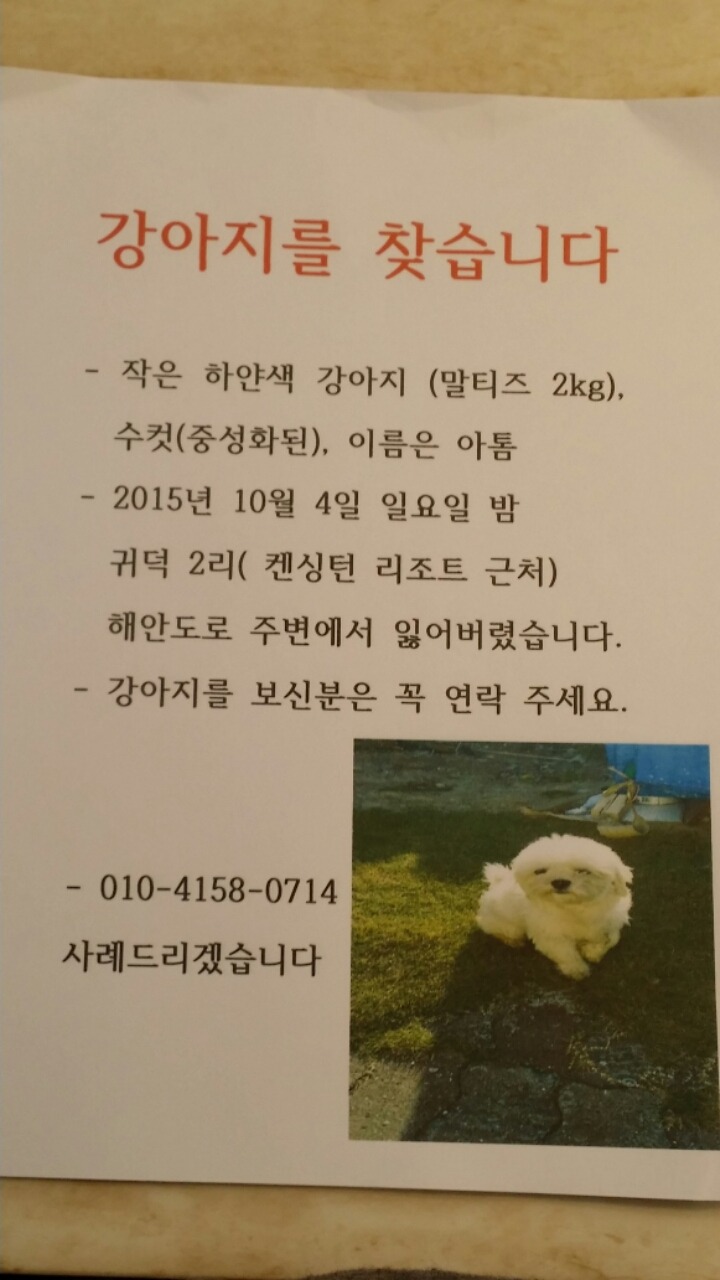 강아지를 찾습니다
- 작은 하얀색 강아지 (말티즈 2kg),
수컷(중성화된), 이름은 아톰
- 2015년 10월 4일 일요일 밤
귀덕 2리( 켄싱턴 리조트 근처)
해안도로 주변에서 잃어버렸습니다.
- 강아지를 보신분은 꼭 연락 주세요.
- 010-4158-0714
사례드리겠습니다